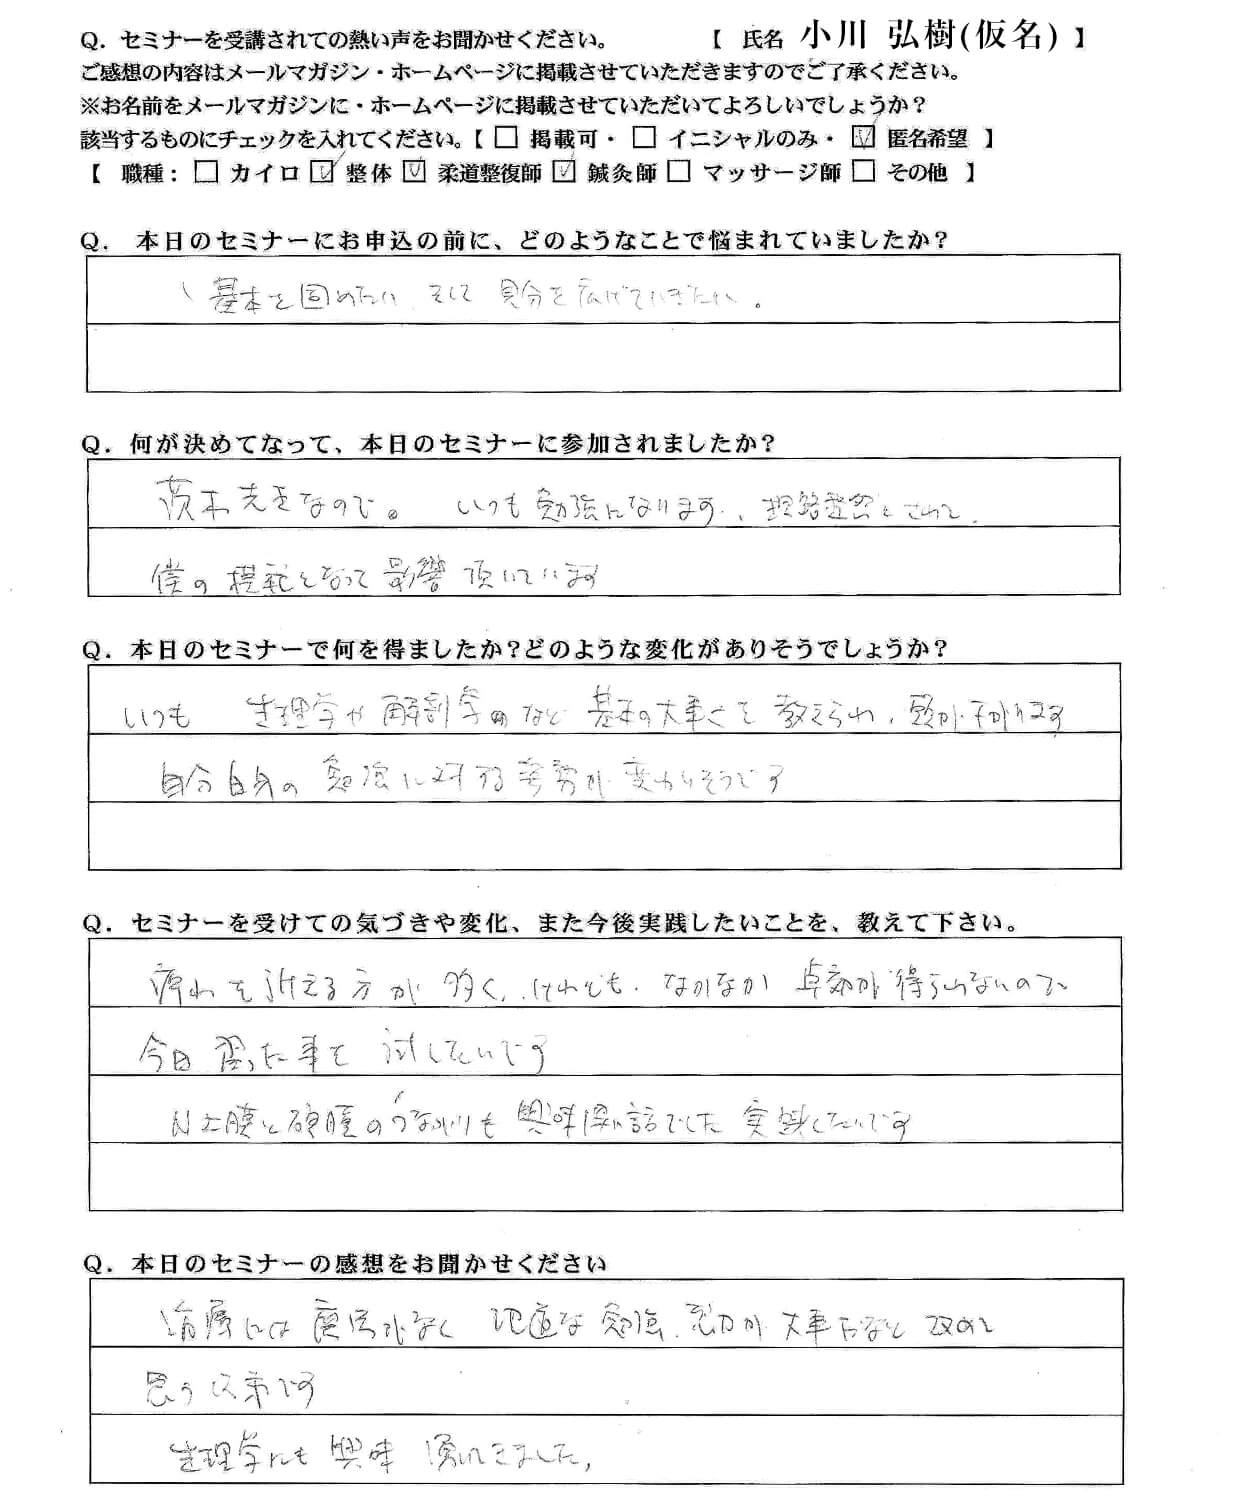 Q. セミナーを受講されての熱い声をお聞かせください。 【 氏名 小川 弘樹(仮名) 】
ご感想の内容はメールマガジン・ホームページに掲載させていただきますのでご了承ください。
※お名前をメールマガジンに・ホームページに掲載させていただいてよろしいでしょうか？
該当するものにチェックを入れてください。【 □ 掲載可・ □ イニシャルのみ・ ☑ 匿名希望 】
【 職種： □ カイロ ☑ 整体 ☑ 柔道整復師 ☑ 鍼灸師 □ マッサージ師 □ その他 】
Q. 本日のセミナーにお申込の前に、どのようなことで悩まれていましたか？
基本を固めたい そして 自分を広げていきたい。
Q. 何が決めてなって、本日のセミナーに参加されましたか？
茨木先生なので。 いつも勉強になります、
僕の模範となって影響頂いています
Q. 本日のセミナーで何を得ましたか？どのような変化がありそうでしょうか？
いつも 生理学や解剖学など 基本の大事さを教えられ、頭が下がります
自分自身の勉強に対する姿勢が変わりそうです
Q. セミナーを受けての気づきや変化、また今後実践したいことを、教えて下さい。
痺れを訴える方が多く、けれども、なかなか卓効が得られないので
今日習った事を試したいです
膜と硬膜のつながりも興味深い話でした 実践したいです
Q. 本日のセミナーの感想をお聞かせください
治療には魔法がなく 地道な勉強、努力が大事だなと改めて
思う次第です
生理学にも興味湧いてきました。